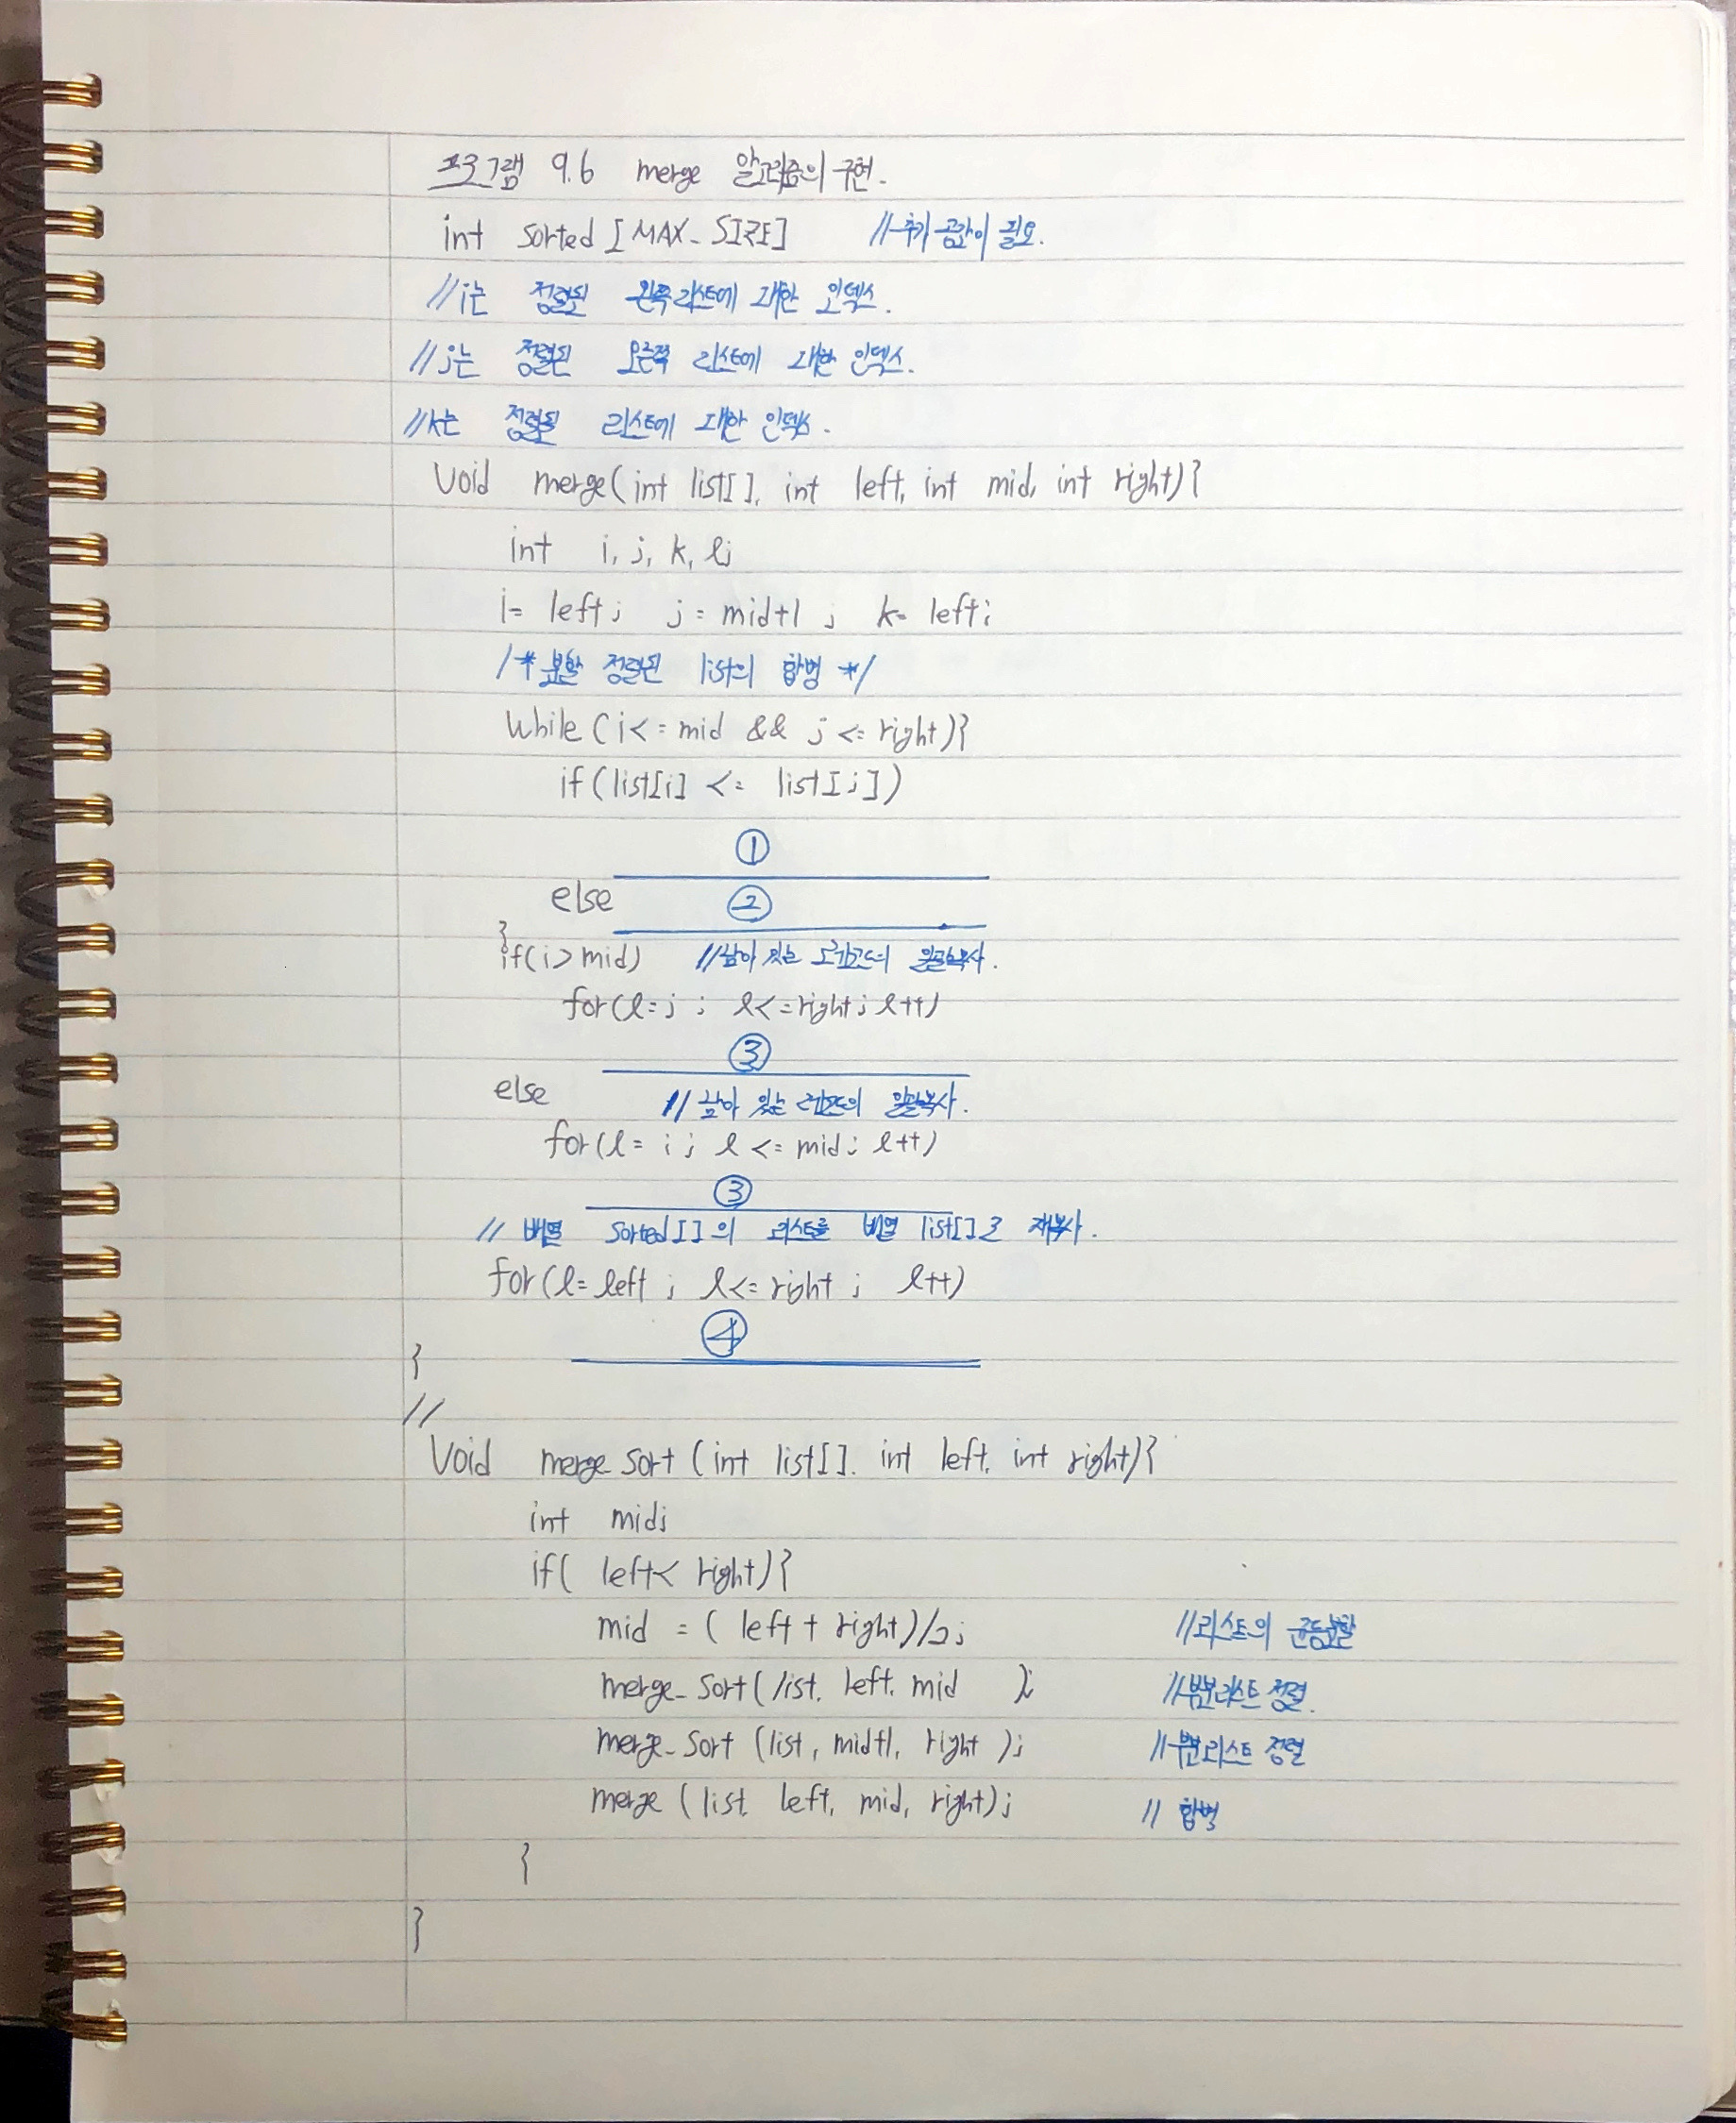 프로그램 9.6 merge 알고리즘의 구현.
int sorted [MAX_SIZE] //추가 공간이 필요.
//i는 정렬된 왼쪽리스트에 대한 인덱스.
//j는 정렬된 오른쪽 리스트에 대한 인덱스.
//k는 정렬된 리스트에 대한 인덱스.
Void merge(int list[], int left, int mid, int right){
int i, j, k, l;
i= left; j= mid+1 ; k= left;
/* 분할 정렬된 list의 합병 */
While (i<= mid && j <= right){
if(list[i] <= list[j])
①
else ②
}
if(i> mid) //남아 있는 레코드의 일괄복사.
for(l=j ; l<=right; l++)
③
else //남아 있는 레코드의 일괄복사.
for(l= i; l <= mid; l++)
③
// 배열 sorted[]의 리스트를 배열 list[]로 재복사.
for(l= left ; l<= right ; l++)
④
}
//
Void merge_sort (int list[], int left, int right){
int mid;
if( left< right){
mid = ( left + right)/2; //리스트의 균등분할
merge_sort(list, left, mid ); //부분리스트 정렬.
merge_sort (list, mid+1, right ); //부분리스트 정렬
merge (list, left, mid, right); // 합병
}
}